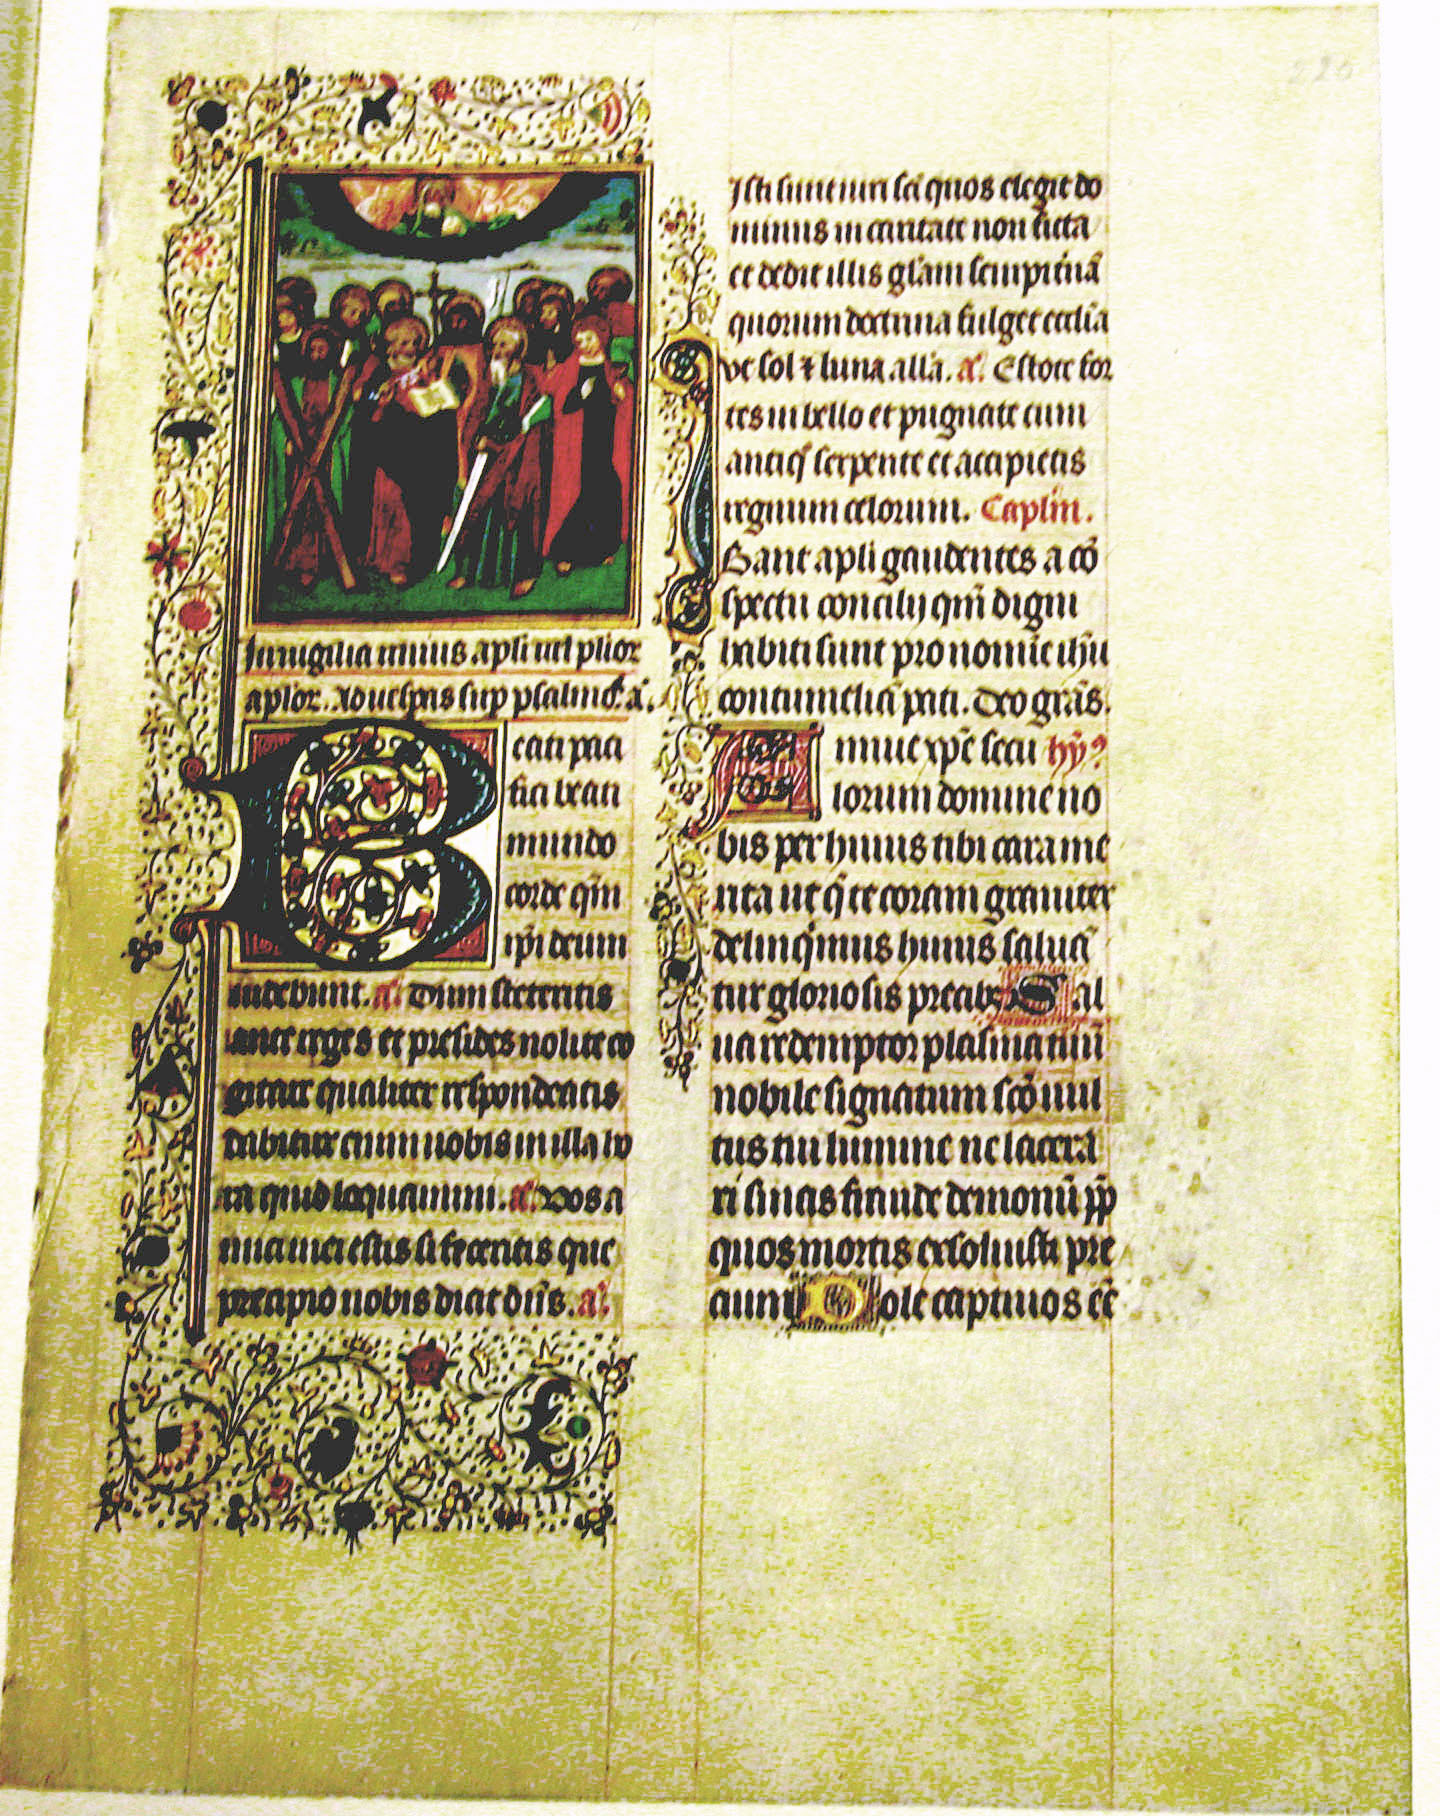 In vigilia unius apli vel plior
aplor. Ad vesperas sup psalmos. a.
Beati paci
fici beati
mundo
corde qm̄
ipi deum
videbunt. a. Dum steteritis
ante reges et presides nolite co
gitare qualiter respondeatis
dabitur enim vobis in illa ho
ra quid loquamini. a. Vos a
mici mei estis si feceritis que
precipio vobis dicit dn̄s. a.
220
Isti sunt viri sc̄i quos elegit do
minus in caritate non ficta
et dedit illis glām sempitnā
quorum doctrina fulget ecclīa
ut sol ⁊ luna. allā. a. Estote for
tes in bello et pugnate cum
antiq̄ serpente et accipietis
regnum celorum. Caplm̄.
Ibant apli gaudentes a cō
spectu concilij qm̄ digni
habiti sunt pro nomīe ihū
contumeliā pati. Deo grās.
Eterne xp̄e secu hȳ⁹
lorum domine no
bis per huius tibi cara me
rita ut q̄ te coram graviter
delinqimus huius saluā
tur gloriosis precibus Sal
va redemptor plasma tuū
nobile signatum scō vul
tus tui lumine ne lacera
ri sinas fraude demonū pp̄
quos mortis exsolvisti pre
cium Dole captivos eē